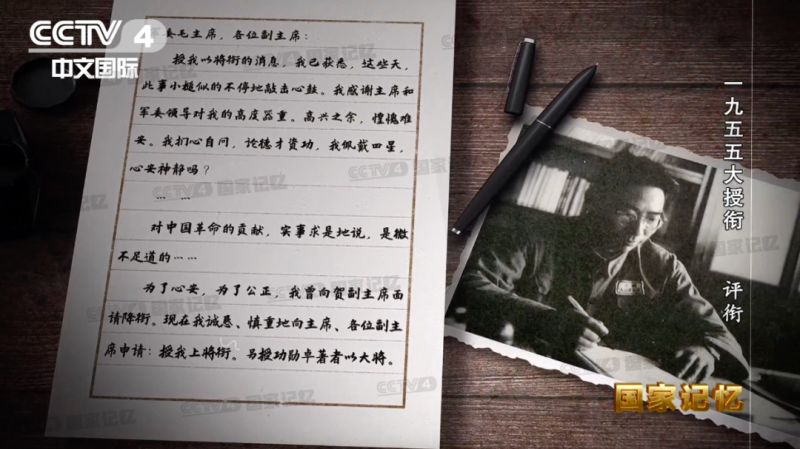 CCTV 4
中文国际
军委毛主席，各位副主席：
授我以将衔的消息，我已获悉，这些天，
此事小槌似的不停地敲击心鼓。我感谢主席和
军委领导对我的高度器重。高兴之余，惶愧难
安。我扪心自问，论德才资功，我佩戴四星，
心安神静吗？
… …
对中国革命的贡献，实事求是地说，是微
不足道的……
为了心安，为了公正，我曾向贺副主席面
请降衔。现在我诚恳、慎重地向主席、各位副主
席申请：授我上将衔。另授功勋卓著者以大将。
一九五五大授衔 评衔
国家记忆
CCTV4 国家记忆
CCTV4 国家记忆
CCTV4 国家记忆
CCTV4 国家记忆